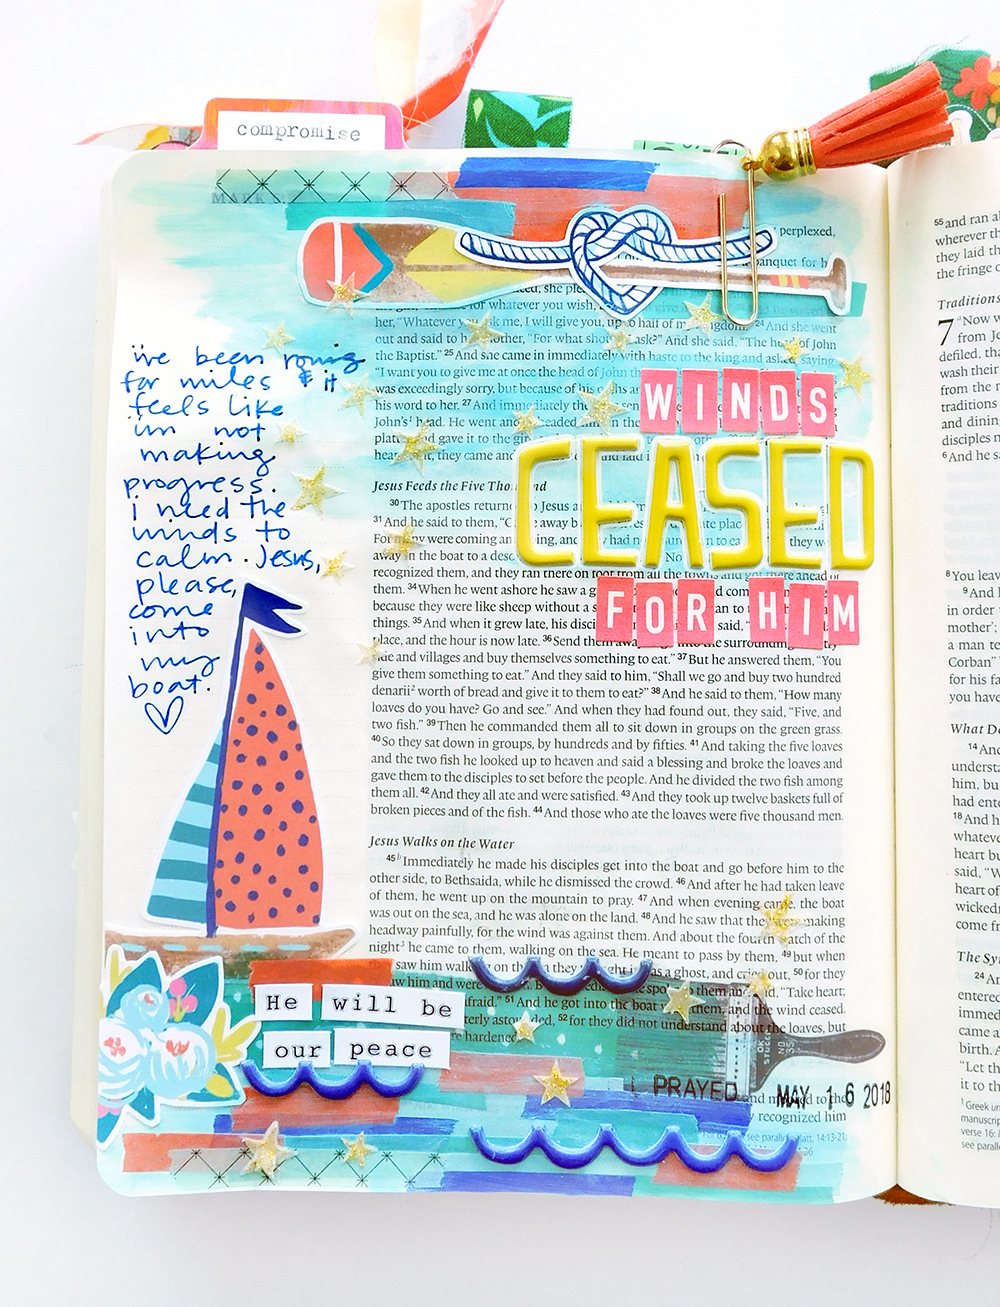 compromise
MARK
perplexed,
banquet for
she
for whatever you wish,
her, "Whatever you ask me, I will give you, up to half of my kingdom." 24 And she went
out and said to her mother, "For what should I ask?" And she said, "The head of John
the Baptist." 25 And she came in immediately with haste to the king and asked, saying
"I want you to give me at once the head of John the
was exceedingly sorry, but because of his oaths an
his word to her. 27 And immediately the sen
John's head. He went and beheaded him in the
and gave it to the gir
they came and
i've been rowing
for miles & it
feels like
i'm not
making
progress.
i need the
winds to
calm. Jesus,
please,
come
into
my
boat.
WINDS
CEASED
FOR HIM
Jesus Feeds the Five Thousand
30 The apostles return to Jesus a
31 And he said to them, "C away b
For many were coming and ing, and had n
away in the boat to a des
recognized them, and they ran there on foot from all the towns and got there ahead of
them. 34 When he went ashore he saw a g
because they were like sheep without a s
things. 35 And when it grew late, his disci said,
place, and the hour is now late. 36 Send them away to the surrounding
side and villages and buy themselves something to eat." 37 But he answered them, "You
give them something to eat." And they said to him, "Shall we go and buy two hundred
denarii2 worth of bread and give it to them to eat?" 38 And he said to them, "How many
loaves do you have? Go and see." And when they had found out, they said, "Five, and
two fish." 39 Then he commanded them all to sit down in groups on the green grass.
40 So they sat down in groups, by hundreds and by fifties. 41 And taking the five loaves
and the two fish he looked up to heaven and said a blessing and broke the loaves and
gave them to the disciples to set before the people. And he divided the two fish among
them all. 42 And they all ate and were satisfied. 43 And they took up twelve baskets full of
broken pieces and of the fish. 44 And those who ate the loaves were five thousand men.
Jesus Walks on the Water
45 Immediately he made his disciples get into the boat and go before him to the
other side, to Bethsaida, while he dismissed the crowd. 46 And after he had taken leave
of them, he went up on the mountain to pray. 47 And when evening came, the boat
was out on the sea, and he was alone on the land. 48 And he saw that they were making
headway painfully, for the wind was against them. And about the fourth watch of the
night3 he came to them, walking on the sea. He meant to pass by them, 49 but when
saw him walking on the they thought it was a ghost, and cried out, 50 for they
saw him and were spoke to them and said, "Take heart;
afraid." 51 And he got into the boat with them, and the wind ceased.
utterly astounded, 52 for they did not understand about the loaves, but
were hardened.
He will be
our peace
PRAYED MAY 16 2018
and moored to the
recognized him
see parallel Matt. 14:13-21;
55 and ran a
wherever th
they laid th
the fringe o
Traditions
7 Now w
from Je
defiled, tha
wash their
from the m
traditions
and dining
disciples n
6 And he sa
8 You leave
9 And
in order
mother';
a man te
Corban"
for his fa
you have
What De
14 And
understa
him, bu
had ente
18 And h
whateve
heart bu
said, "W
heart of
wickedn
come fr
The Sy
24 An
entered
immed
came a
birth. A
"Let th
it to th
1 Greek un
manuscrip
verse 16:
see paralle